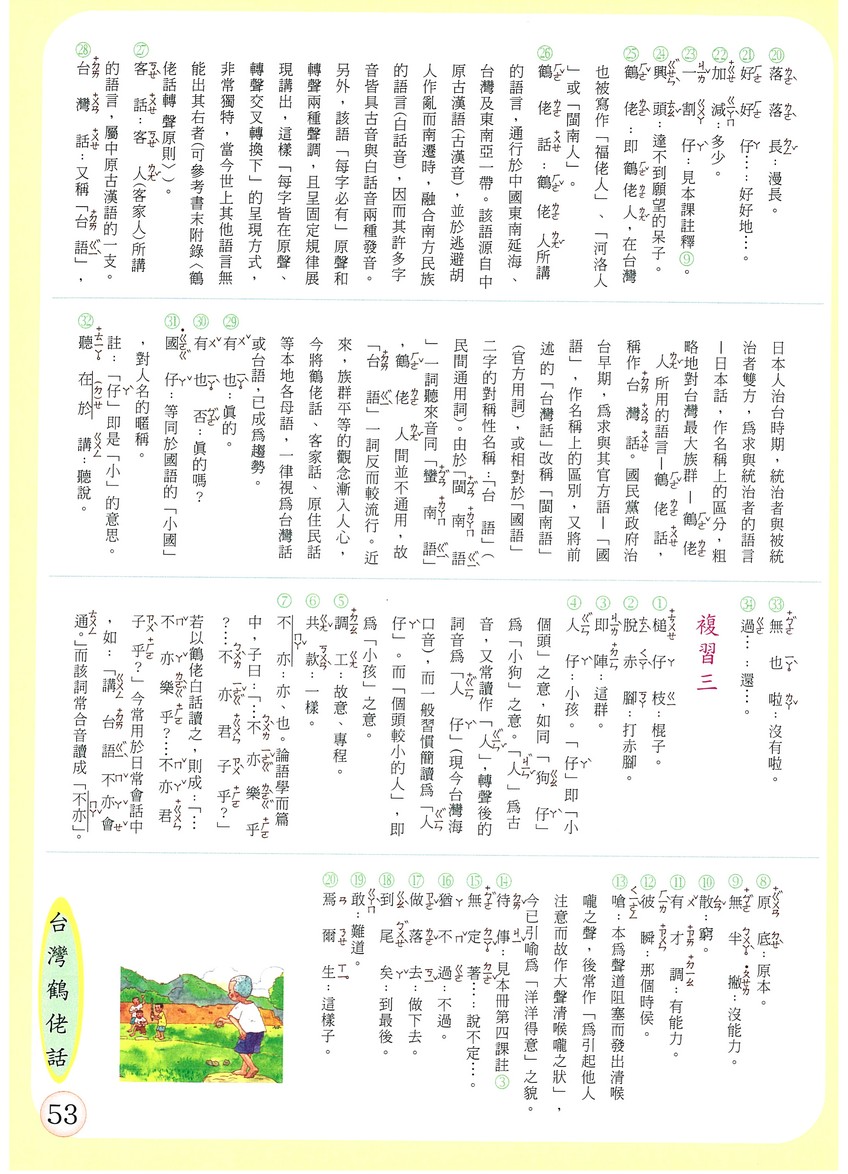 ⑳落落長：漫長。
㉑好好仔…：好好地…。
㉒加減：多少。
㉓一割仔：見本課註釋⑨。
㉔興頭：達不到願望的呆子。
㉕鶴佬：即鶴佬人，在台灣
也被寫作「福佬人」、「河洛人
」或「閩南人」。
㉖鶴佬話：鶴佬人所講
的語言，通行於中國東南延海、
台灣及東南亞一帶。該語源自中
原古漢語(古漢音)，並於逃避胡
人作亂而南遷時，融合南方民族
的語言(白話音)，因而其許多字
音皆具古音與白話音兩種發音。
另外，該語「每字必有」原聲和
轉聲兩種聲調，且呈固定規律展
現講出，這樣「每字皆在原聲、
轉聲交叉轉換下」的呈現方式，
非常獨特，當今世上其他語言無
能出其右者(可參考書末附錄〈鶴
佬話轉聲原則〉)。
㉗客話：客人(客家人)所講
的語言，屬中原古漢語的一支。
㉘台灣話：又稱「台語」，
日本人治台時期，統治者與被統
治者雙方，為求與統治者的語言
—日本話，作名稱上的區分，粗
略地對台灣最大族群—鶴佬
人所用的語言—鶴佬話，
稱作台灣話。國民黨政府治
台早期，為求與其官方語—「國
語」，作名稱上的區別，又將前
述的「台灣話」改稱「閩南語」
(官方用詞)，或相對於「國語」
二字的對稱性名稱：「台語」(
民間通用詞)。由於「閩南語
」一詞聽來音同「蠻南語」
，鶴佬人間並不通用，故
「台語」一詞反而較流行。近
來，族群平等的觀念漸入人心，
今將鶴佬話、客家話、原住民話
等本地各母語，一律視為台灣話
或台語，已成為趨勢。
㉙有也：真的。
㉚有也否：真的嗎？
㉛國仔：等同於國語的「小國」
，對人名的暱稱。
註：「仔」即是「小」的意思。
㉜聽在於講：聽說。
㉝無也啦：沒有啦。
㉞過…：還…。
複習三
①槌仔枝：棍子。
②脫赤腳：打赤腳。
③即陣：這群。
④人仔：小孩。「仔」即「小
個頭」之意，如同「狗仔」
為「小狗」之意。「人」為古
音，又常讀作「人」，轉聲後的
詞音為「人仔」(現今台灣海
口音)，而一般習慣簡讀為「人
仔」。而「個頭較小的人」，即
為「小孩」之意。
⑤調工：故意、專程。
⑥共款：一樣。
⑦不亦：亦、也。論語學而篇
中，子曰：「…不亦樂乎
？…不亦君子乎？」
若以鶴佬白話讀之，則成：「…
不亦樂乎？…不亦君
子乎？」今常用於日常會話中
，如：「講台語不亦會
通。」而該詞常合音讀成「不亦」。
⑧原底：原本。
⑨無半撇：沒能力。
⑩散：窮。
⑪有才調：有能力。
⑫彼瞬：那個時侯。
⑬嗆：本為聲道阻塞而發出清喉
嚨之聲，後常作「為引起他人
注意而故作大聲清喉嚨之狀」，
今已引喻為「洋洋得意」之貌。
⑭待傳：見本冊第四課註③
⑮無定著…：說不定…。
⑯猶不過：不過。
⑰做落去：做下去。
⑱到尾矣：到最後。
⑲敢：難道。
⑳焉爾生：這樣子。
台灣鶴佬話
53